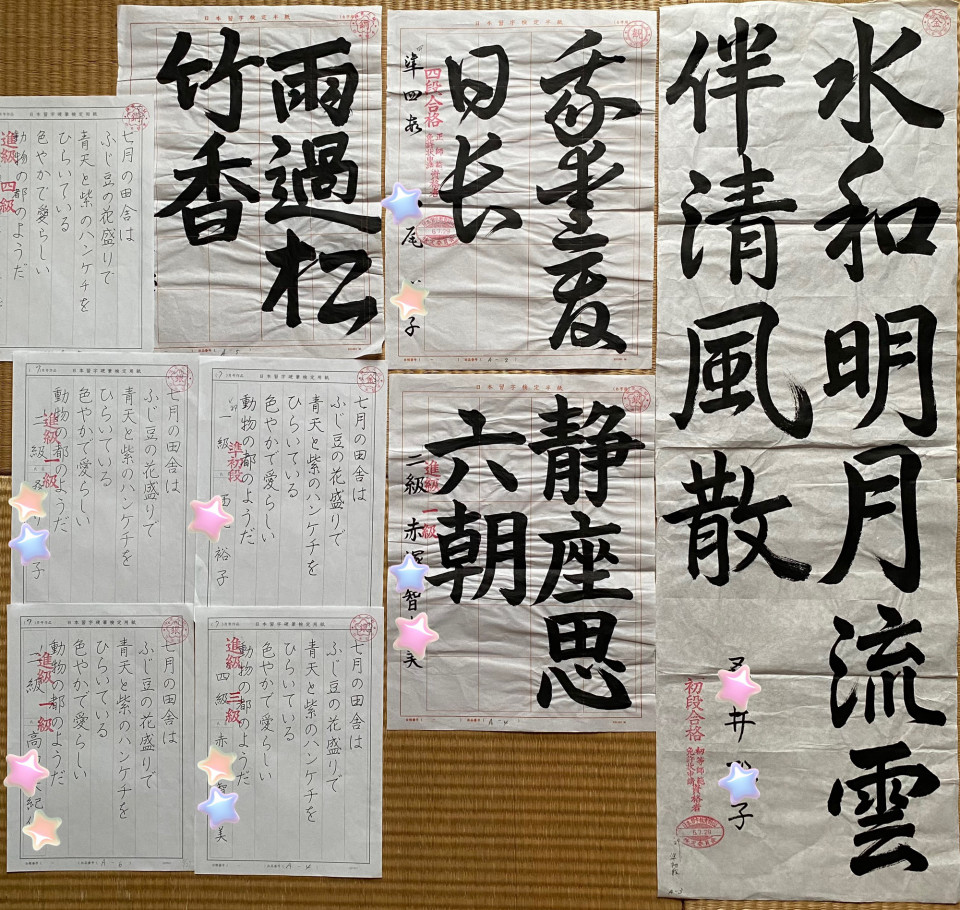 水和明月流雲
伴清風散
井 子
初段合格
日本習字検定半紙
我愛夏
日長
準四段
尾 子
四段合格
日本習字検定半紙
雨過松
竹香
日本習字検定半紙
静座思
六朝
二級 赤 智 美
進級 一級
日本習字硬筆検定用紙
七月の田舎は
ふじ豆の花盛りで
青天と紫のハンケチを
ひらいている
色やかで愛らしい
動物の都のようだ
進級 四級
日本習字硬筆検定用紙
七月の田舎は
ふじ豆の花盛りで
青天と紫のハンケチを
ひらいている
色やかで愛らしい
動物の都のようだ
一級 西 裕子
準初段
日本習字硬筆検定用紙
七月の田舎は
ふじ豆の花盛りで
青天と紫のハンケチを
ひらいている
色やかで愛らしい
動物の都のようだ
二級 子
進級 一級
日本習字硬筆検定用紙
七月の田舎は
ふじ豆の花盛りで
青天と紫のハンケチを
ひらいている
色やかで愛らしい
動物の都のようだ
四級 赤 美
進級 三級
日本習字硬筆検定用紙
七月の田舎は
ふじ豆の花盛りで
青天と紫のハンケチを
ひらいている
色やかで愛らしい
動物の都のようだ
二級 高 紀
進級 一級